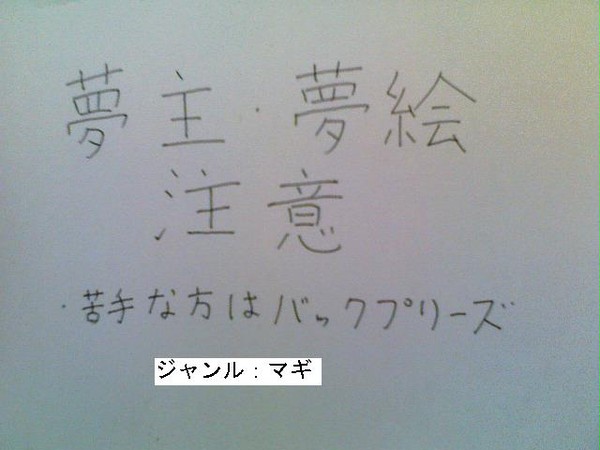 夢主・夢絵
注意
・苦手な方はバックプリーズ
ジャンル：マギ